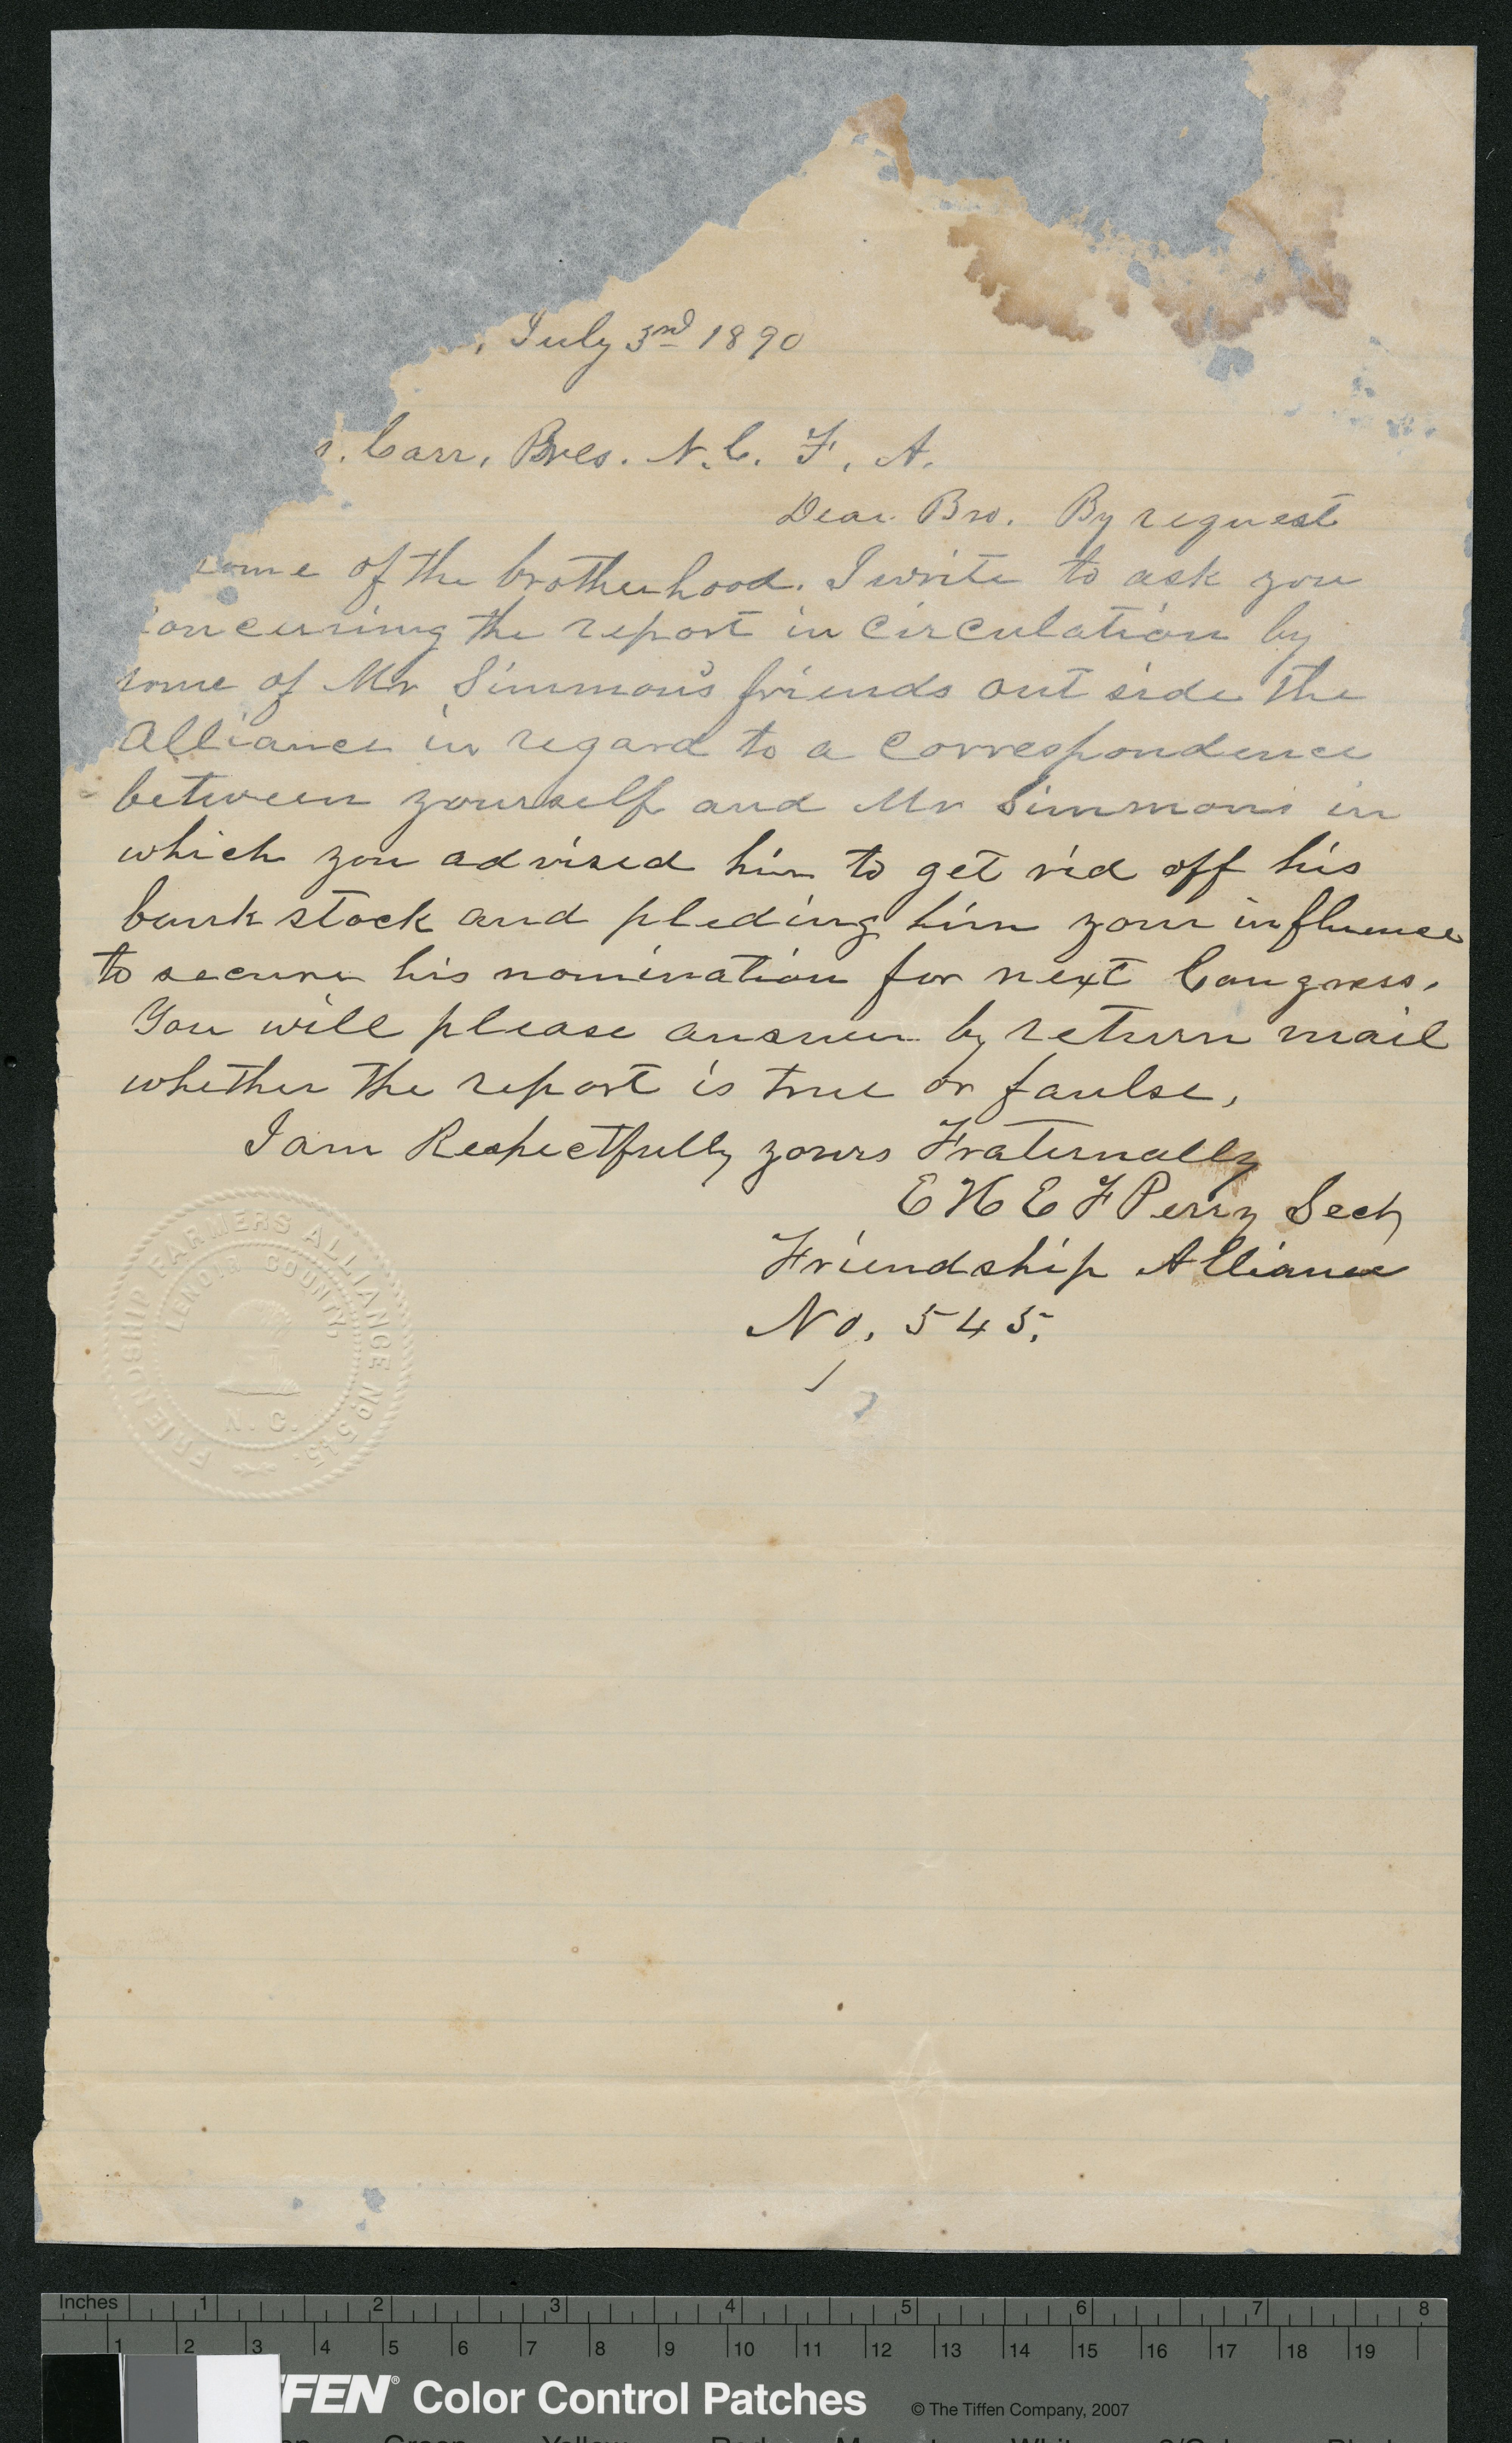 , July 3rd 1890
. Carr, Pres. N. C. F. A.
Dear Bro. By request
some of the brotherhood. I write to ask you
concerning the report in circulation by
some of Mr Simmon's friends out side the
Alliance in regard to a correspondence
between yourself and Mr Simmons in
which you advised him to get rid off his
bank stock and pleding him your influence
to secure his nomination for next Congress.
You will please answer by return mail
whether the report is true or faulse,
I am Respectfully yours Fraternally
E H E F Perry Secty
Friendship Alliance
No. 545.
FRIENDSHIP FARMERS ALLIANCE No 545.
LENOIR COUNTY,
N. C.
Inches 1 2 3 4 5 6 7 8
1 2 3 4 5 6 7 8 9 10 11 12 13 14 15 16 17 18 19
FFEN® Color Control Patches © The Tiffen Company, 2007